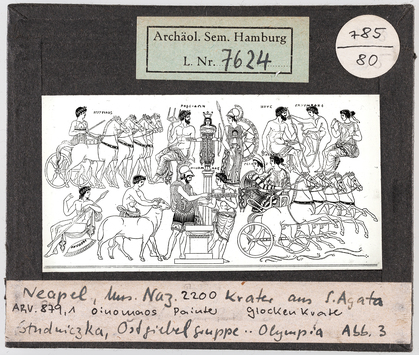 Archäol. Sem. Hamburg
L. Nr. 7624
785
80
Neapel, Mus. Naz. 2200 Krater aus S. Agata
ARV. 879,1 oinomaos Painter glockenkrater
Studniczka, Ostgiebelgruppe .. Olympia Abb. 3